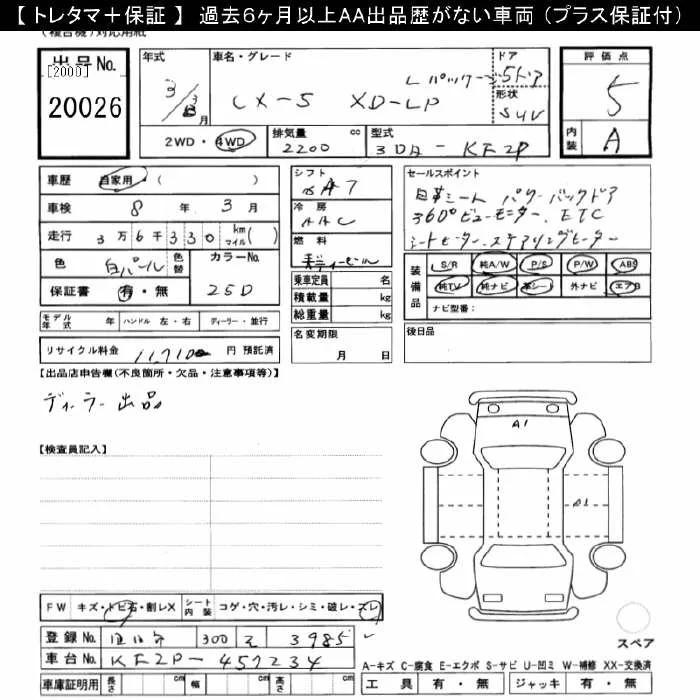 【 トレタマ＋保証 】 過去6ヶ月以上AA出品歴がない車両 (プラス保証付)
(複合機)対応用紙
出品No. [2000] 20026
年式 3/3月
車名・グレード CX-5 XD-LP Lパッケージ
ドア 5ドア
形状 SUV
評価点 5
内装 A
2WD・4WD
排気量 2200 cc
型式 3DA-KF2P
車歴 自家用・( )
車検 8年 3月
走行 3万6千330 km マイル( )
色 白パール 色替
カラーNo. 25D
保証書 有・無
シフト AT
冷房 AAC
燃料
乗車定員 名
積載量 kg
総重量 kg
セールスポイント
本革シート パワーバックドア
360°ビューモニター、ETC
シートヒーター、ステアリングヒーター
装備品 S/R 純A/W P/S P/W ABS
純TV 純ナビ 革シート 外ナビ エアB
ナビ型番:
モデル年式 年 ハンドル 左・右 ディーラー・並行
リサイクル料金 11,710 円 預託済
名変期限 月 日
後日品
【出品店申告欄(不良箇所・欠品・注意事項等)】
ディーラー出品
【検査員記入】
A1
A1
FW キズ・トビ石・割レX シート内装 コゲ・穴・汚レ・シミ・破レ・スレ
登録No. 300 3985
車台No. KF2P-457234
スペア
A-キズ C-腐食 E-エクボ S-サビ U-凹ミ W-補修 XX-交換済
車庫証明用 長さ cm 幅 cm 高さ cm
工具 有・無 ジャッキ 有・無